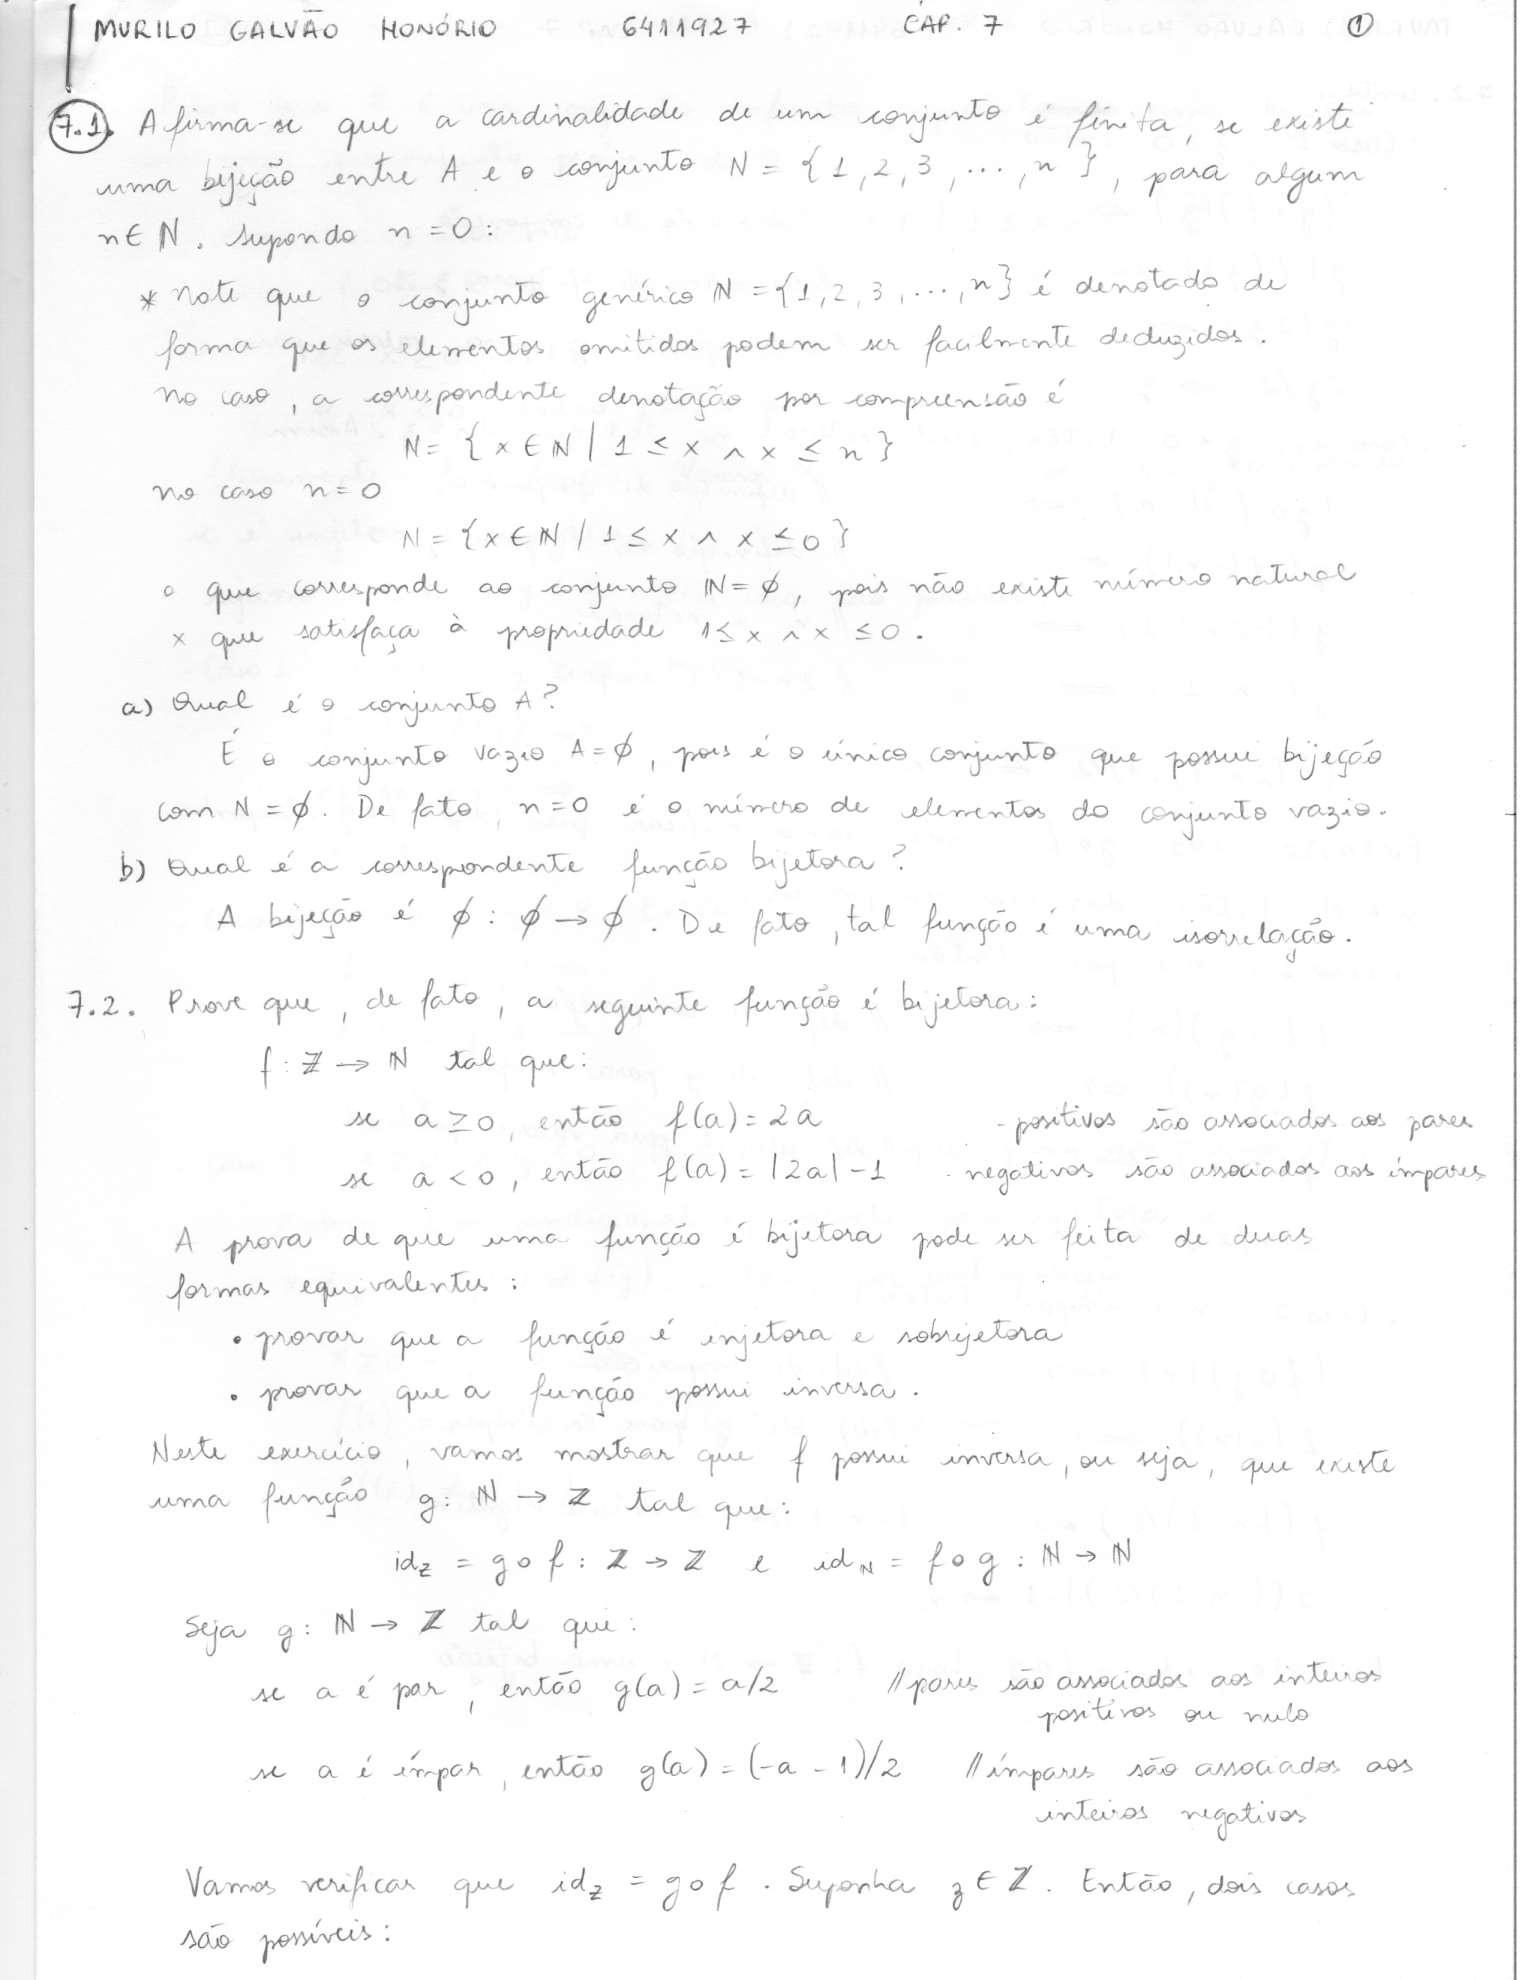 MURILO GALVÃO HONÓRIO 6411927 CAP. 7 1
7.1. Afirma-se que a cardinalidade de um conjunto é finita, se existe
uma bijeção entre A e o conjunto N = {1, 2, 3, ..., n}, para algum
n ∈ ℕ. Supondo n = 0:
* Note que o conjunto genérico ℕ = {1, 2, 3, ..., n} é denotado de
forma que os elementos omitidos podem ser facilmente deduzidos.
No caso, a correspondente denotação por compreensão é
N = {x ∈ ℕ | 1 ≤ x ∧ x ≤ n}
no caso n = 0
N = {x ∈ ℕ / 1 ≤ x ∧ x ≤ 0}
o que corresponde ao conjunto ℕ = ∅, pois não existe número natural
x que satisfaça à propriedade 1 ≤ x ∧ x ≤ 0.
a) Qual é o conjunto A?
É o conjunto vazio A = ∅, pois é o único conjunto que possui bijeção
com N = ∅. De fato, n = 0 é o número de elementos do conjunto vazio.
b) Qual é a correspondente função bijetora?
A bijeção é ∅ : ∅ → ∅. De fato, tal função é uma isorrelação.
7.2. Prove que, de fato, a seguinte função é bijetora:
f : ℤ → ℕ tal que:
se a ≥ 0, então f(a) = 2a - positivos são associados aos pares
se a < 0, então f(a) = |2a| - 1 - negativos são associados aos ímpares
A prova de que uma função é bijetora pode ser feita de duas
formas equivalentes:
• provar que a função é injetora e sobrejetora
• provar que a função possui inversa.
Neste exercício, vamos mostrar que f possui inversa, ou seja, que existe
uma função g: ℕ → ℤ tal que:
id_ℤ = g o f : ℤ → ℤ e id_ℕ = f o g : ℕ → ℕ
Seja g: ℕ → ℤ tal que:
se a é par, então g(a) = a/2 // pares são associados aos inteiros
positivos ou nulo
se a é ímpar, então g(a) = (-a - 1)/2 // ímpares são associados aos
inteiros negativos
Vamos verificar que id_ℤ = g o f. Suponha z ∈ ℤ. Então, dois casos
são possíveis: